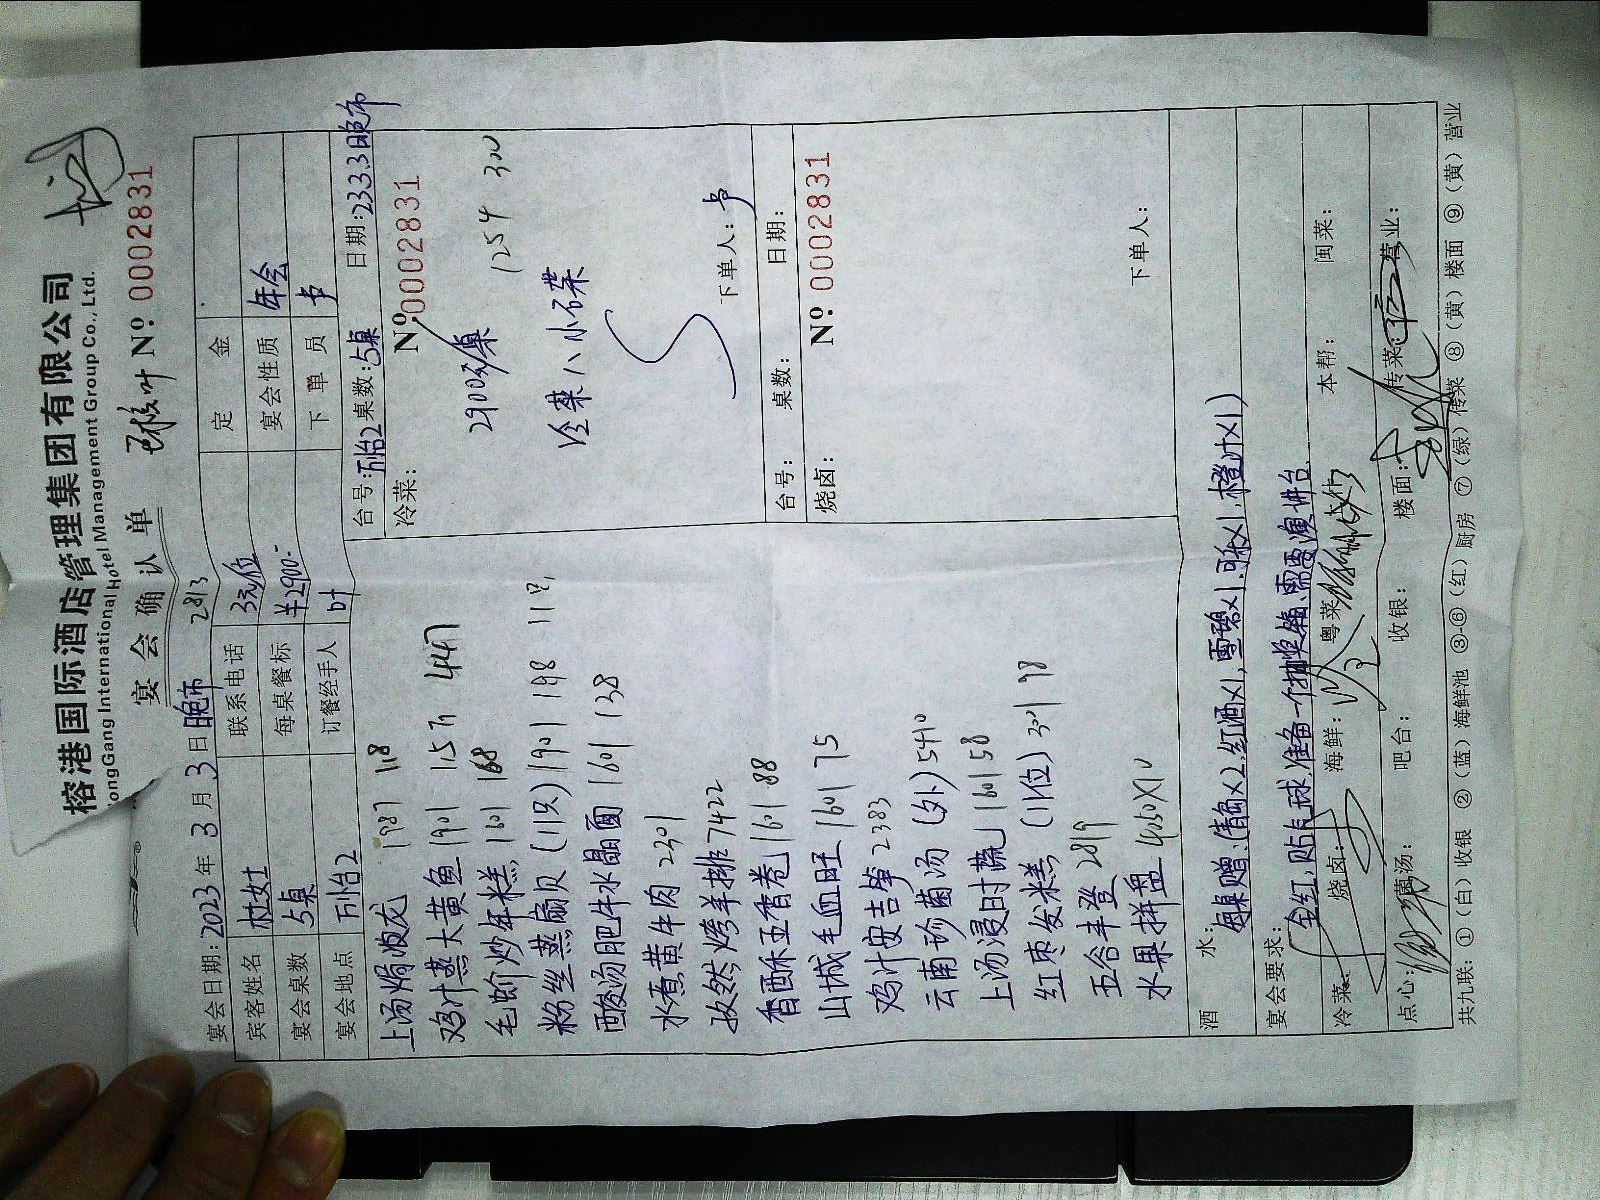 榕港国际酒店管理集团有限公司
RongGang International Hotel Management Group Co., Ltd.
宴会确认单 № 0002831
宴会日期: 2023年3月3日晚市 2813
宾客姓名 林女士 联系电话 3元/位 定金
宴会桌数 5桌 每桌餐标 ¥2900- 宴会性质 年会
宴会地点 万怡2 订餐经手人 下单员 卢
台号: 万怡2 桌数: 5桌 日期: 23.3.3晚市
冷菜: № 0002831
2900元/桌 1254 300
冷菜八小碟
下单人: 卢
台号: 桌数: 日期:
烧卤: № 0002831
下单人:
上汤焗波龙 1987 118
鸡汁蒸大黄鱼 1901 447
毛蚧炒年糕 1601 168
粉丝蒸扇贝(11只) 1901 198 118
酸汤肥牛水晶面 1601 138
水煮黄牛肉 2301
孜然烤羊排 7422
香酥五香卷 1601 88
山城毛血旺 1601 75
鸡汁安吉笋 2383
云南珍菌汤(外) 5410
上汤浸时蔬 1601 58
红枣发米糕(11位) 3301 78
五谷丰登 2819
水果拼盘 4050X10
酒水: 每桌赠:(青岛X2,红酒X1,雪碧X1,可乐X1,橙汁X1)
宴会要求: 全红,贴气球.准备一个抽奖箱、需要演讲台.
冷菜: 烧卤: 海鲜: 粤菜: 本帮: 闽菜:
点心: 羹汤: 吧台: 收银: 楼面: 传菜: 营业:
共九联: ①(白)收银 ②(蓝)海鲜池 ③-⑥(红)厨房 ⑦(绿)传菜 ⑧(黄)楼面 ⑨(黄)营业